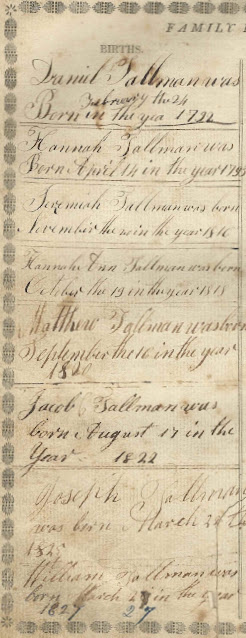 FAMILY
BIRTHS.
Daniel Tallman was
February the 24
Born in the yea 1722
Hannah Tallman was
Born April 14 in the year 179
Jeremiah Tallman was born
November the in the year 1816
Hannah Ann Tallman was born
October the 19 in the year 1818
Matthew Tallman was born
September the 16 in the year
1820
Jacob Tallman was
born August 17 in the
Year 1822
Joseph Tallman
was born March 2
1825
William Tallman was
born March 27 in the year
1827 27